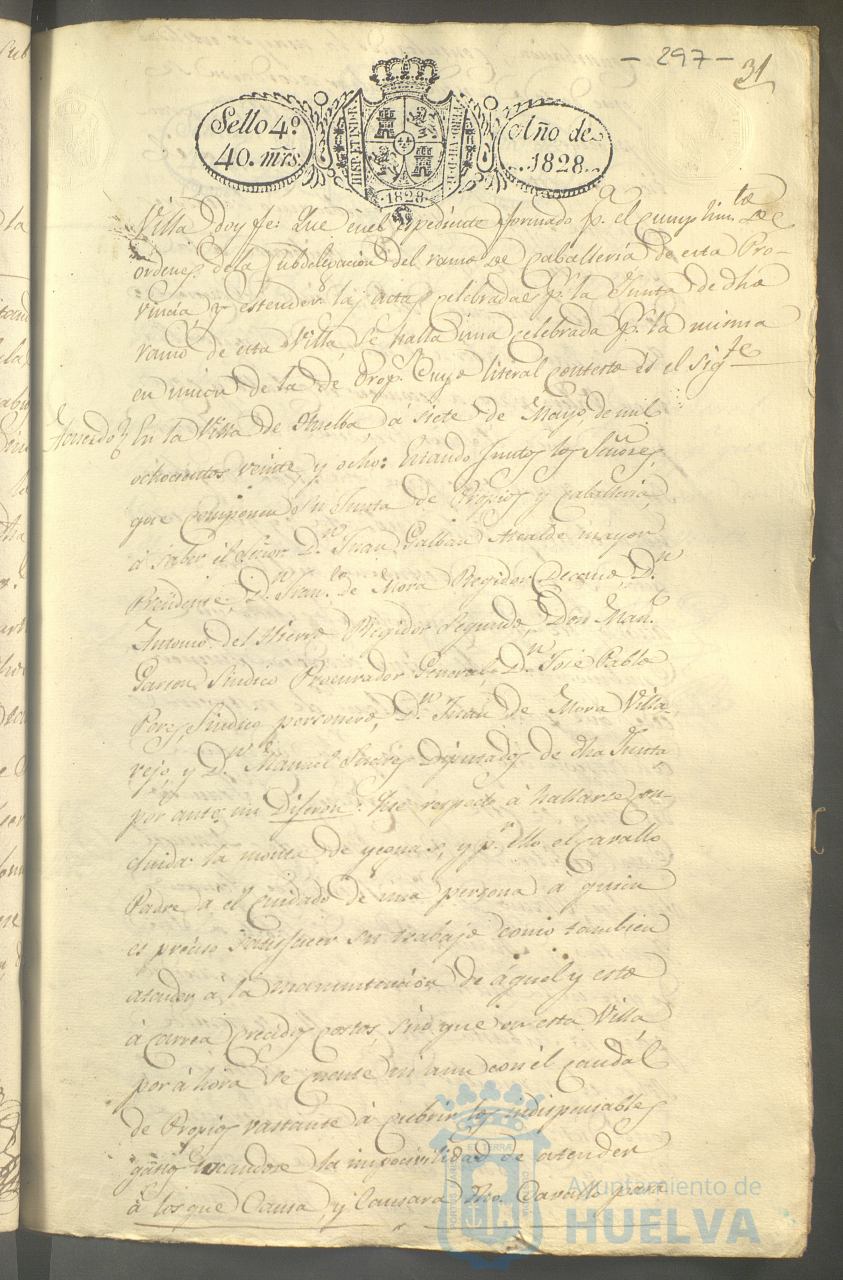 - 297 -
31
Sello 4º
40. mrs.
HISP. ET IND. R.
Año de
1828.
·1828·
Villa doy fe: Que en el expediente formado pª el cumplimto de
ordenes de la Subdelegacion del ramo de Caballeria de esta Pro-
vincia y estender las actas celebradas pr la Junta de dha
ramo de esta Villa, se halla una celebrada pr la misma
en union de la de Props. Cuyo literal contesto es el sigte
Acuerdo En la Villa de Huelba á siete de Mayo de mil
ochocientos veinte y ocho: Estando juntos los Señores
que componen su Junta de Propios y Caballeria,
á saber el Señor Dn Juan Galban Alcalde mayor
Presidente, Dn Franco de Mora Regidor Decano, Dn
Antonio del Hierro Regidor Segundo, Don Manl
Garzon Sindico Procurador General, Dn José Pablo
Perez Sindico personero, Dn Juan de Mora Villa-
rejo, y Dn Manuel Suarez Diputados de dha Junta
por ante mi Dijeron: Que respecto á hallarse con-
cluida la monta de yeguas, y pr ello el Cavallo
Padre á el cuidado de una persona á quien
es preciso satisfacer su trabajo como tambien
atender á la manuntencion de áquel y esto
á carrea crecidos costos, sin que en esta Villa
por áhora se cuente ni aun con él caudál
de Propios vastante á cubrir los indispensables
gastos tocandose la impocivilidad de atender
á los que Causa, y Causará dho. Cavallo para
Ayuntamiento de
HUELVA